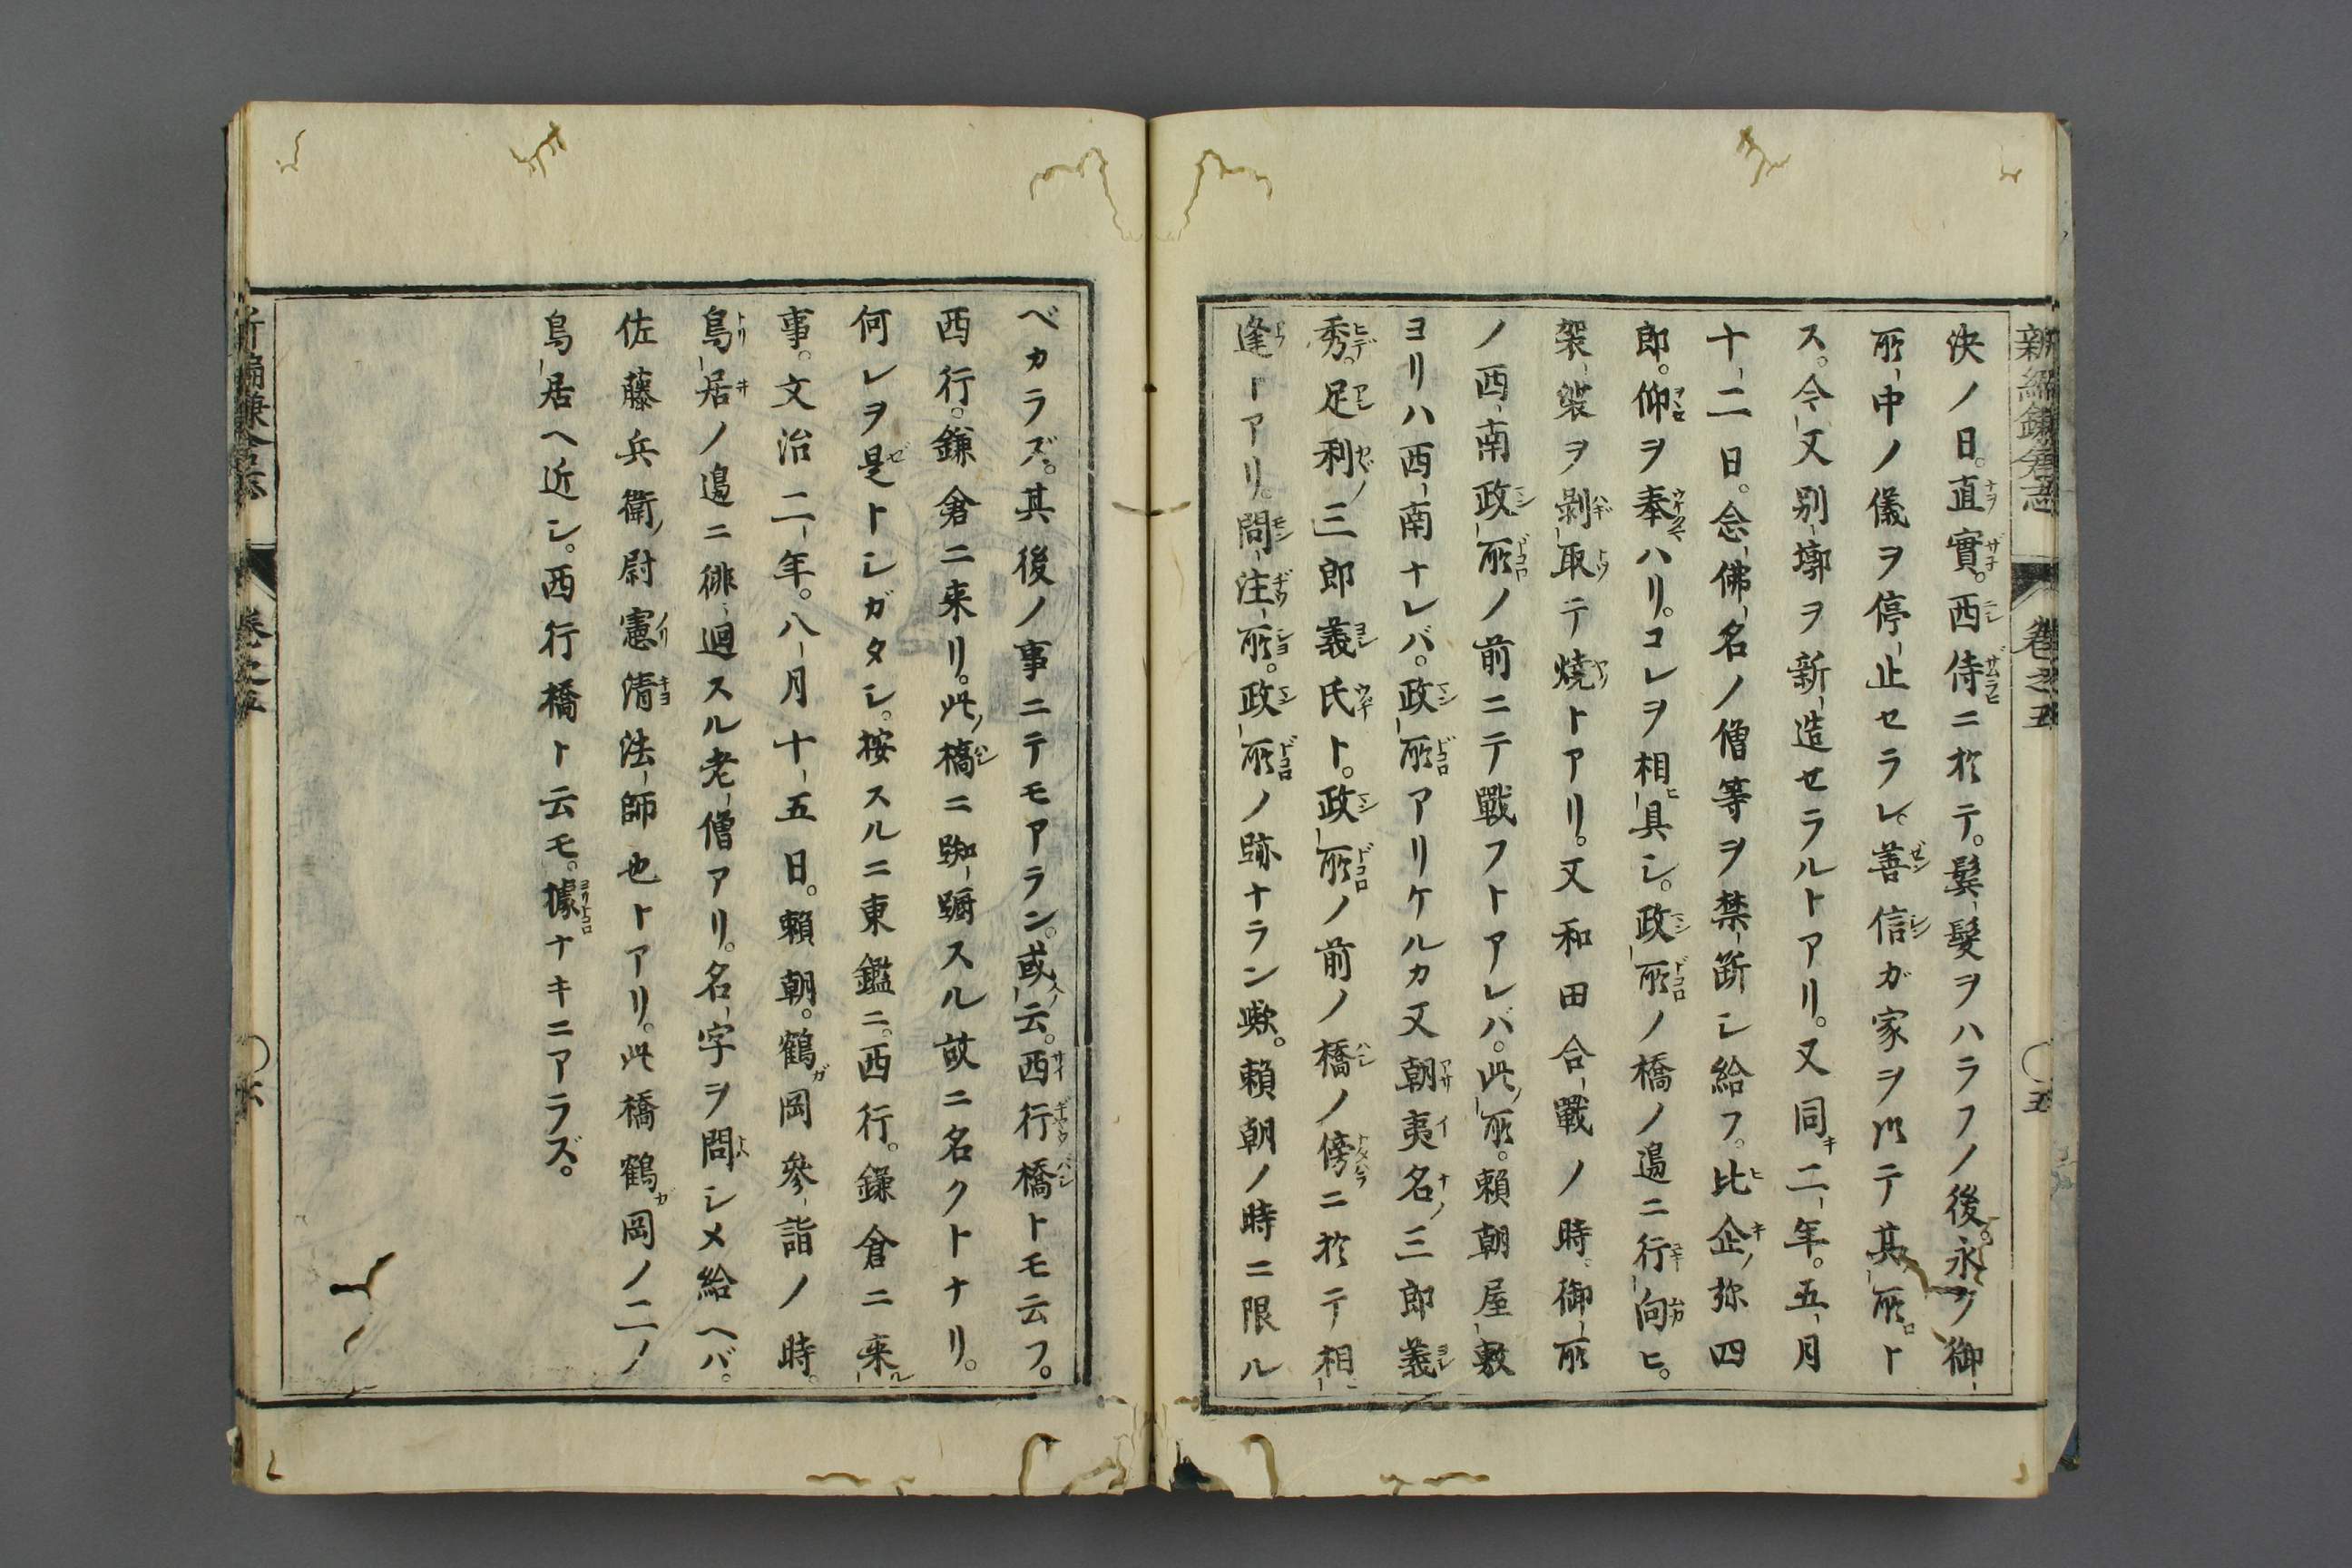 新編鎌倉志 卷之五 〇五
決ノ日。直實。西侍ニ於テ。鬂髮ヲハラフノ後。永ク御
所中ノ儀ヲ停止セラレ。善信ガ家ヲ以テ其所ト
ス。今又別墎ヲ新造セラルトアリ。又同二年。五月
十二日。念佛名ノ僧等ヲ禁断シ給フ。比企弥四
郎。仰ヲ奉ハリ。コレヲ相具シ。政所ノ橋ノ邊ニ行向ヒ。
袈裟ヲ剥取テ燒トアリ。又和田合戰ノ時。御所
ノ西南政所ノ前ニテ戰フトアレバ。此所。頼朝屋敷
ヨリハ西南ナレバ。政所アリケルカ又朝夷名三郎義
秀。足利三郎義氏ト。政所ノ前ノ橋ノ傍ニ於テ相
逢トアリ。問注所。政所ノ跡ナラン歟。頼朝ノ時ニ限ル
ベカラズ。其後ノ事ニテモアラン。或云。西行橋トモ云フ。
西行。鎌倉ニ来リ。此橋ニ踟蹰スル故ニ名クトナリ。
何レヲ是トシガタシ。按スルニ東鑑ニ。西行。鎌倉ニ来
事。文治二年。八月十五日。頼朝。鶴岡參詣ノ時。
鳥居ノ邊ニ徘徊スル老僧アリ。名字ヲ問シメ給ヘバ。
佐藤兵衛尉憲清法師也トアリ。此橋鶴岡ノ二ノ
鳥居ヘ近シ。西行橋ト云モ。據ナキニアラズ。
新編鎌倉志 卷之五 〇六